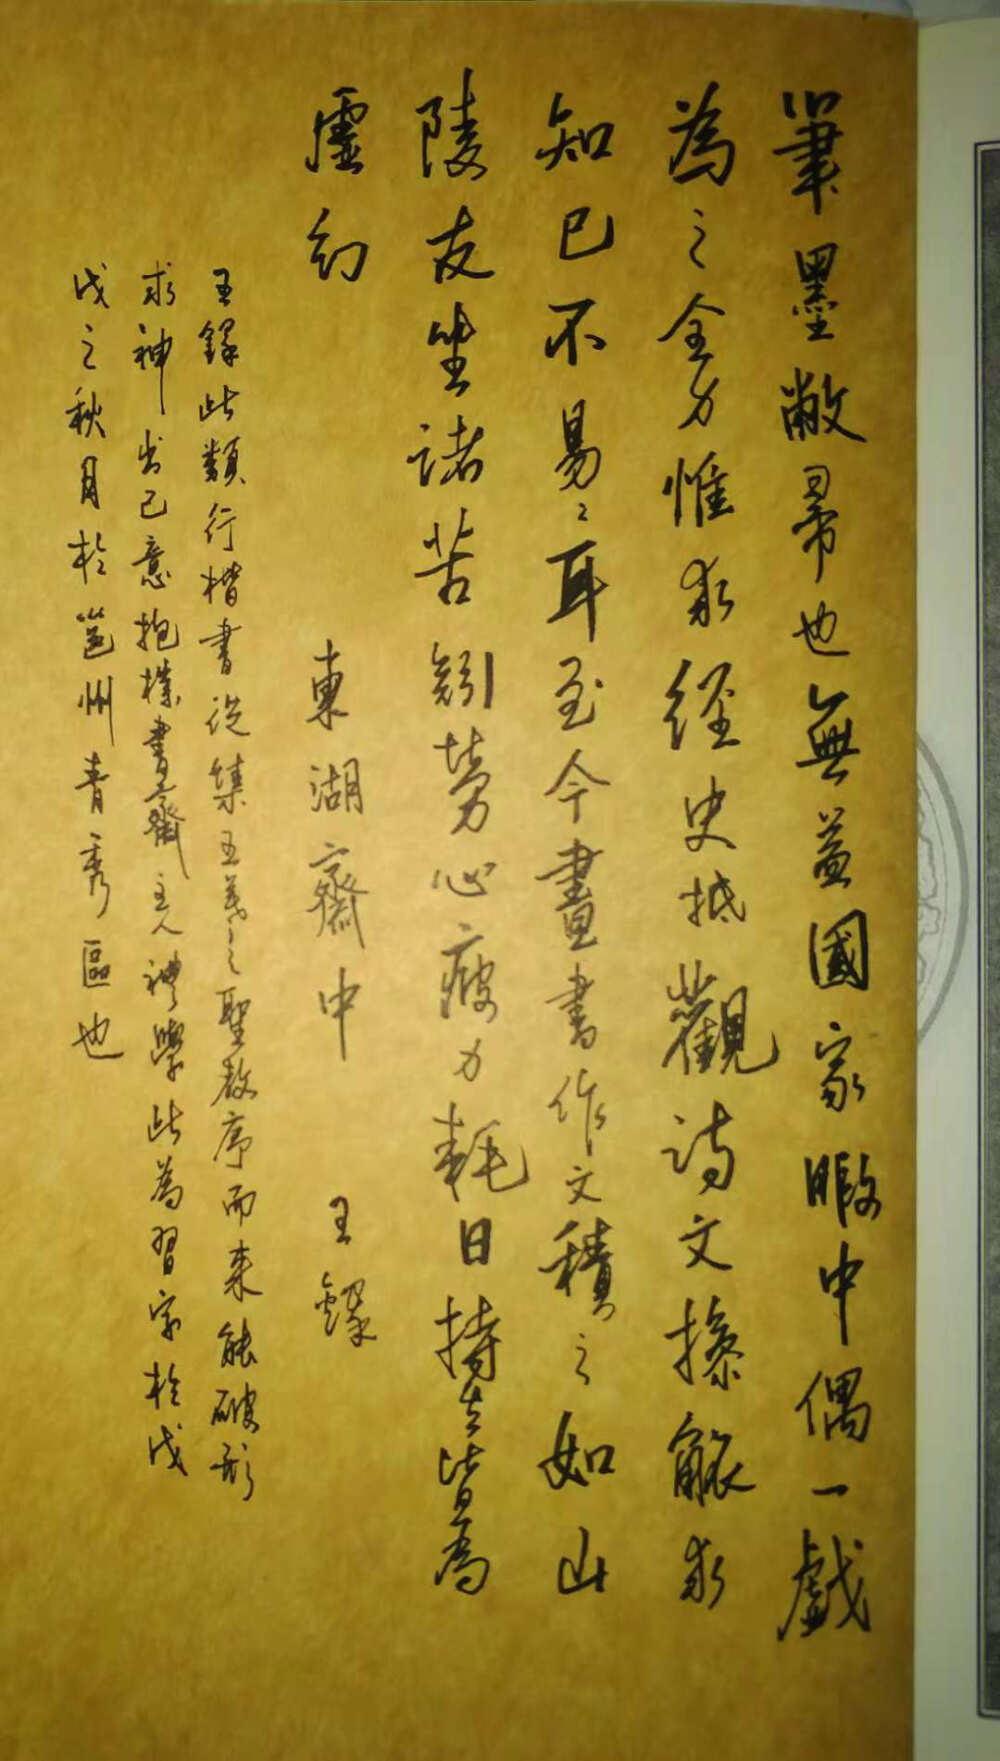 筆墨敝帚也無益國家暇中偶一戲
為之全力惟求經史抵觀詩文操觚求
知己不易〻耳至今畫書作文積之如山
陵友坐諸苦劬勞心疲力耗日持去皆為
虛幻
東湖齋中 王鐸
王鐸此類行楷書從集王羲之聖教序而來能破形
求神出己意抱樸書齋主人禮學此為習字於戊
戌之秋月於邕州青秀區也